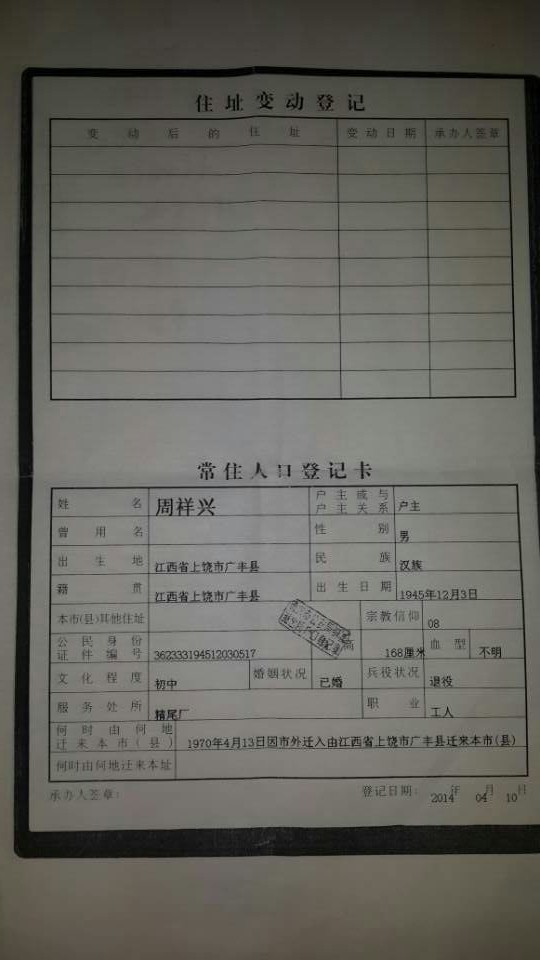 住址变动登记
变动后的住址 变动日期 承办人签章
常住人口登记卡
姓名 周祥兴 户主或与户主关系 户主
曾用名 性别 男
出生地 江西省上饶市广丰县 民族 汉族
籍贯 江西省上饶市广丰县 出生日期 1945年12月3日
本市(县)其他住址 宗教信仰 08
公民身份证件编号 362333194512030517 高 168厘米 血型 不明
文化程度 初中 婚姻状况 已婚 兵役状况 退役
服务处所 精尾厂 职业 工人
何时由何地迁来本市(县) 1970年4月13日因市外迁入由江西省上饶市广丰县迁来本市(县)
何时由何地迁来本址
承办人签章: 登记日期: 2014年04月10日